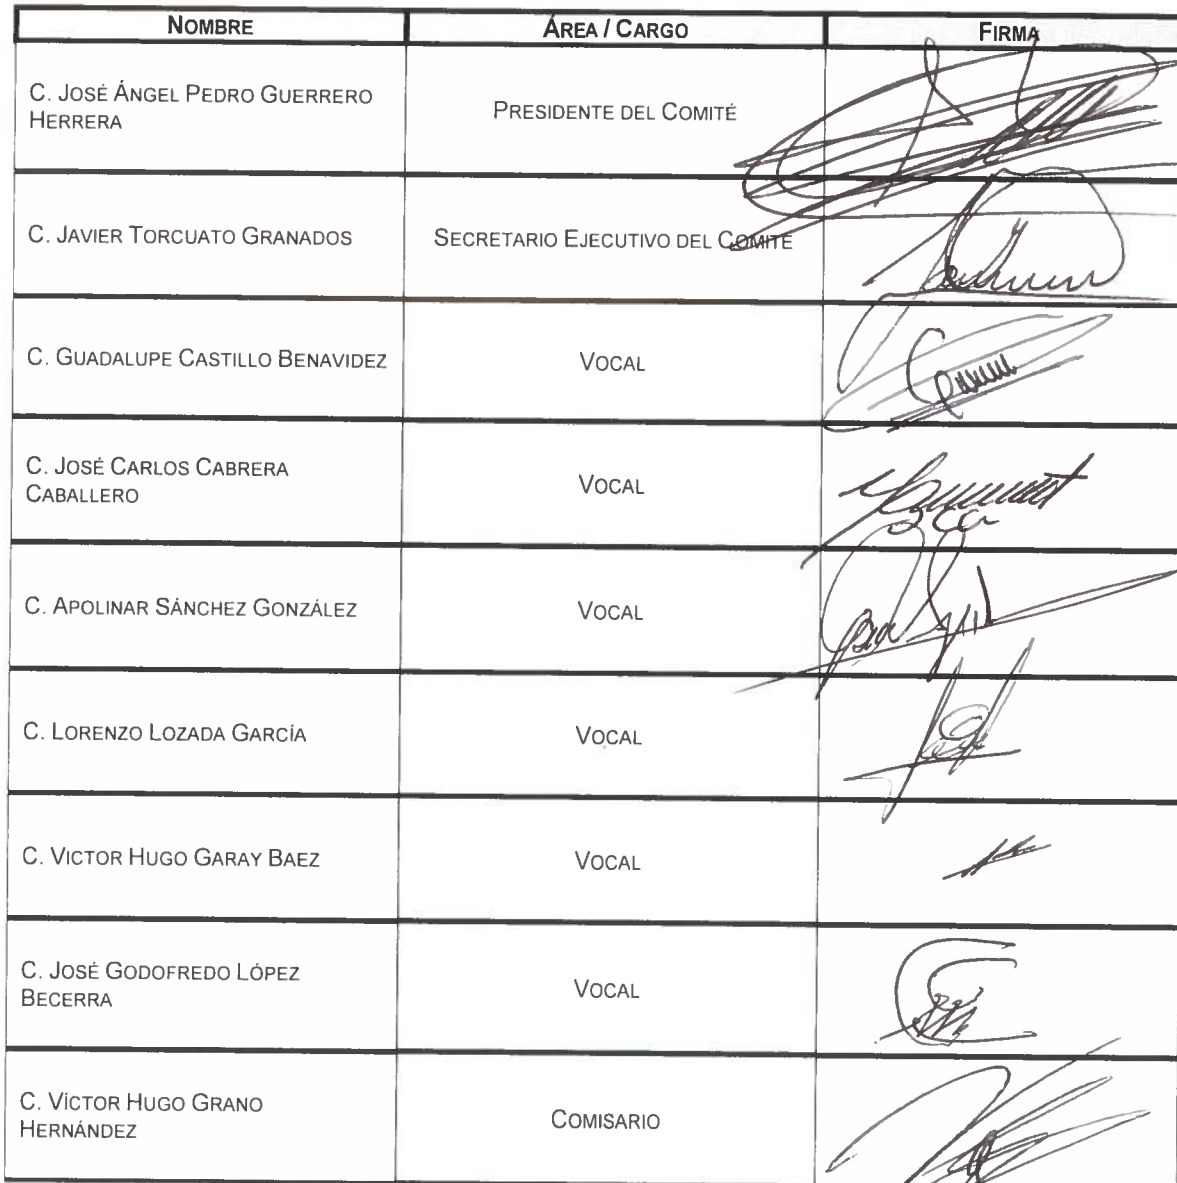 NOMBRE ÁREA / CARGO FIRMA
C. JOSÉ ÁNGEL PEDRO GUERRERO
HERRERA
PRESIDENTE DEL COMITÉ
C. JAVIER TORCUATO GRANADOS SECRETARIO EJECUTIVO DEL COMITÉ
C. GUADALUPE CASTILLO BENAVIDEZ VOCAL
C. JOSÉ CARLOS CABRERA
CABALLERO
VOCAL
C. APOLINAR SÁNCHEZ GONZÁLEZ VOCAL
C. LORENZO LOZADA GARCÍA VOCAL
C. VICTOR HUGO GARAY BAEZ VOCAL
C. JOSÉ GODOFREDO LÓPEZ
BECERRA
VOCAL
C. VÍCTOR HUGO GRANO
HERNÁNDEZ
COMISARIO